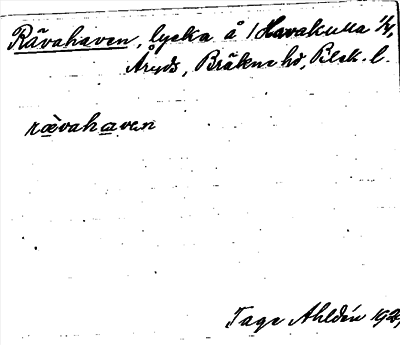 Rävahaven, lycka å 1 Havakulla 1/4,
Åryds, Bräkne hd, Blek. l.
rävahaven
Tage Ahldén 192